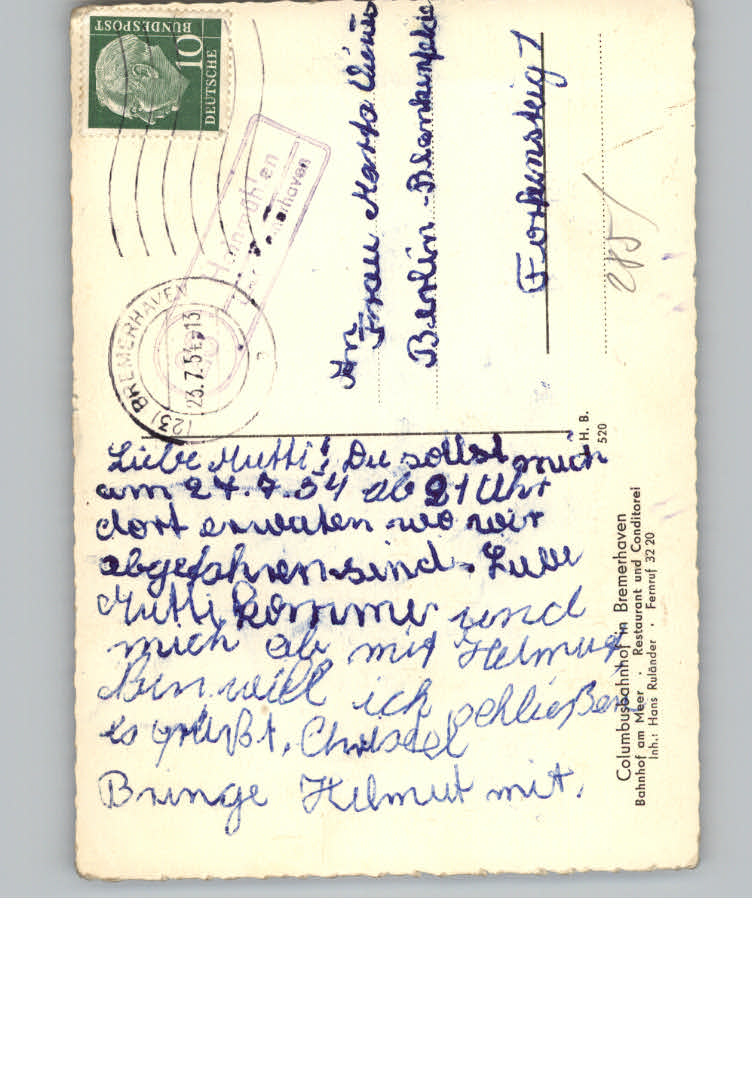 DEUTSCHE
BUNDESPOST
10
(23) BREMERHAVEN
23.7.54-13
An
Frau Marta
Berlin-Blankenfelde
Forkensteig 7
285
Liebe Mutti! Du sollst mich
am 24.7.54 ab 21 Uhr
dort erwaten wo wir
abgefahren sind. Liebe
Mutti komme und
mich ab mit Helmut
Nun will ich schließen
es grüßt, Christel
Bringe Helmut mit.
H. B.
520
Columbusbahnhof in Bremerhaven
Bahnhof am Meer · Restaurant und Conditorei
Inh.: Hans Ruländer · Fernruf 32 20